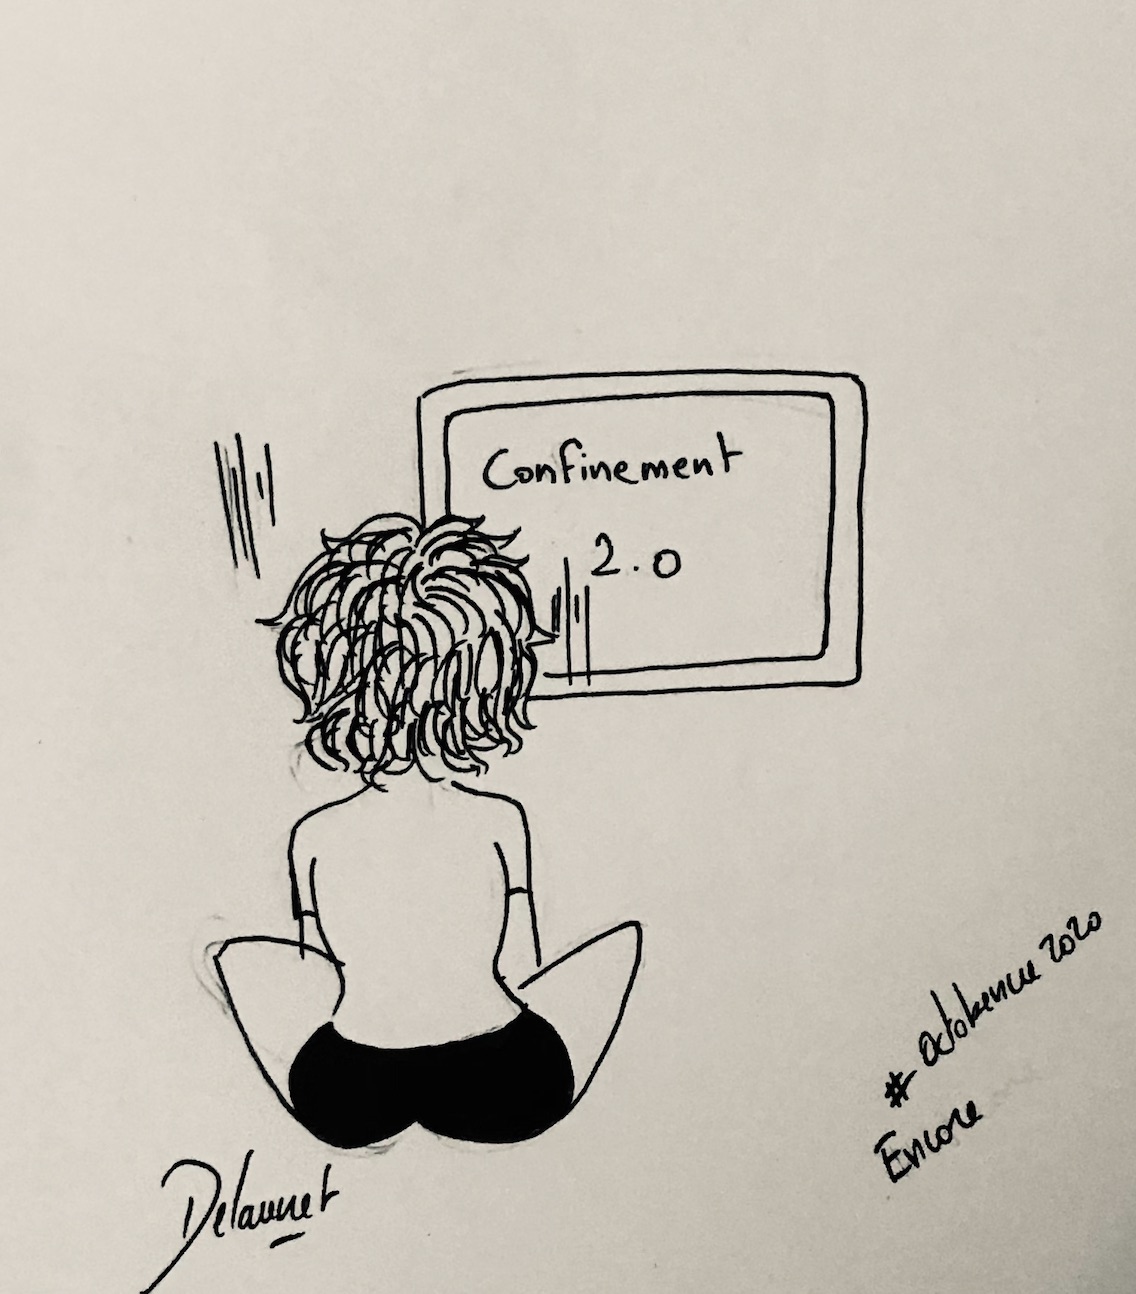 Confinement
2.0
# octobence 2020
Encore
Delaunet